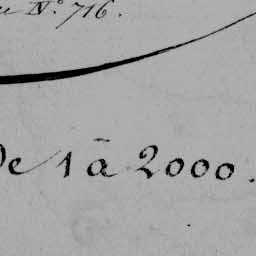 N.º 716.
De 1 à 2000.